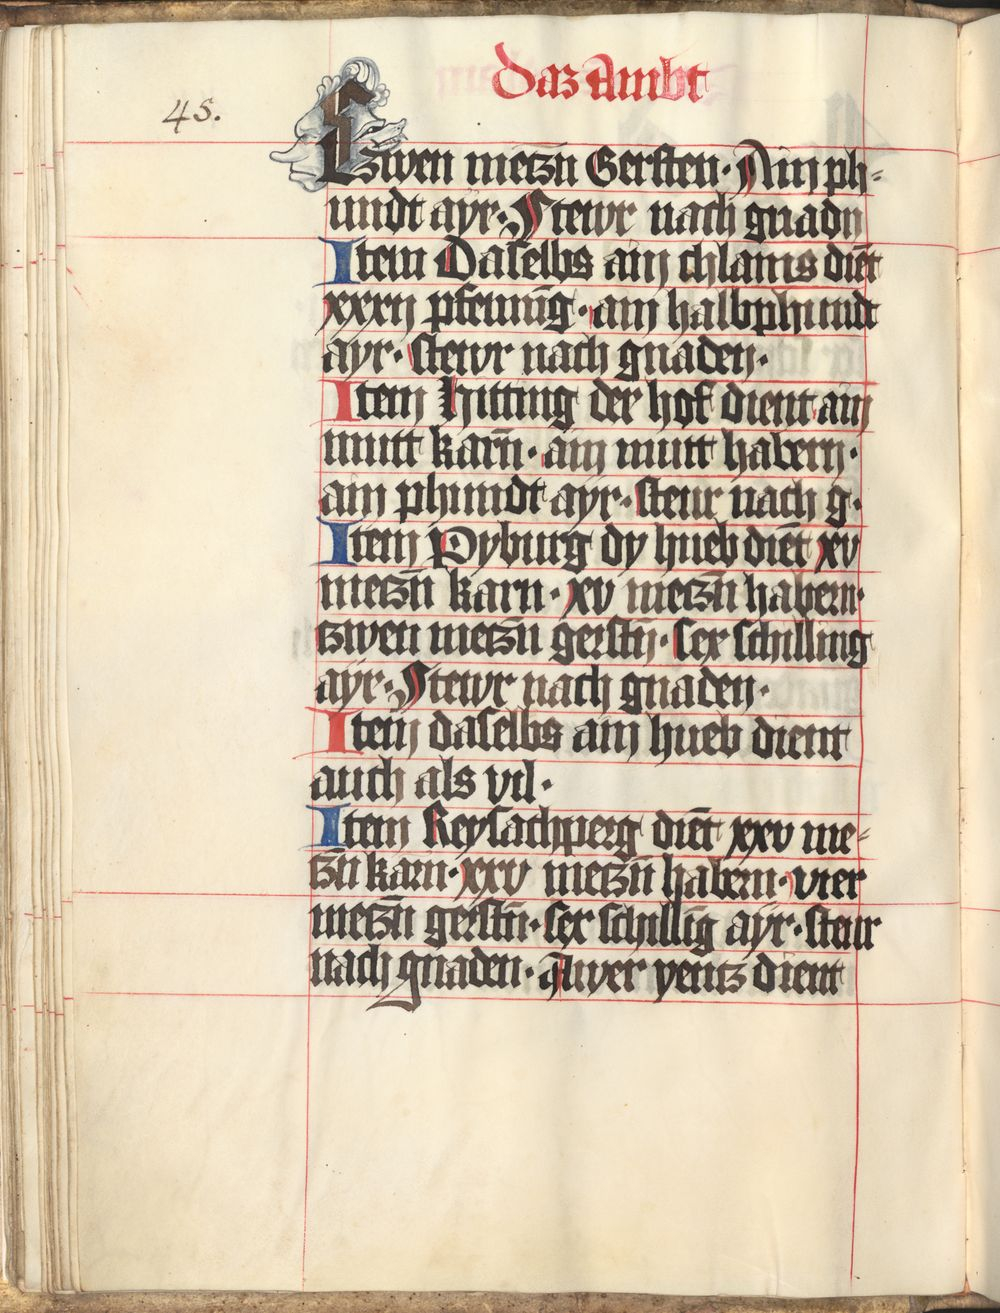 Das Ambt
45.
Czwen metzn Gersten · Ain ph-
undt ayr · Stewr nach gnadn
Item Daselbs ain chlains diēt
xxxij pfennīg · ain halbphundt
ayr · stewr nach gnaden ·
Item Hitting der hof dient ain
mutt karn̄ · ain mutt habern ·
ain phundt ayr · steur nach g ·
Item Pyburg dy hueb diēt xv
metzn̄ karn · xv metzn̄ habern ·
tzwen metzn̄ gerstn̄ · sex schilling
ayr · Stewr nach gnaden ·
Item daselbs ain hueb dient
auch als vil ·
Item Reysachperg diēt xxv me-
tzn̄ karn · xxv metzn̄ habern · vier
metzn̄ gerstn̄ · sex schillīg ayr · steur
nach gnaden · Auer yentz dient